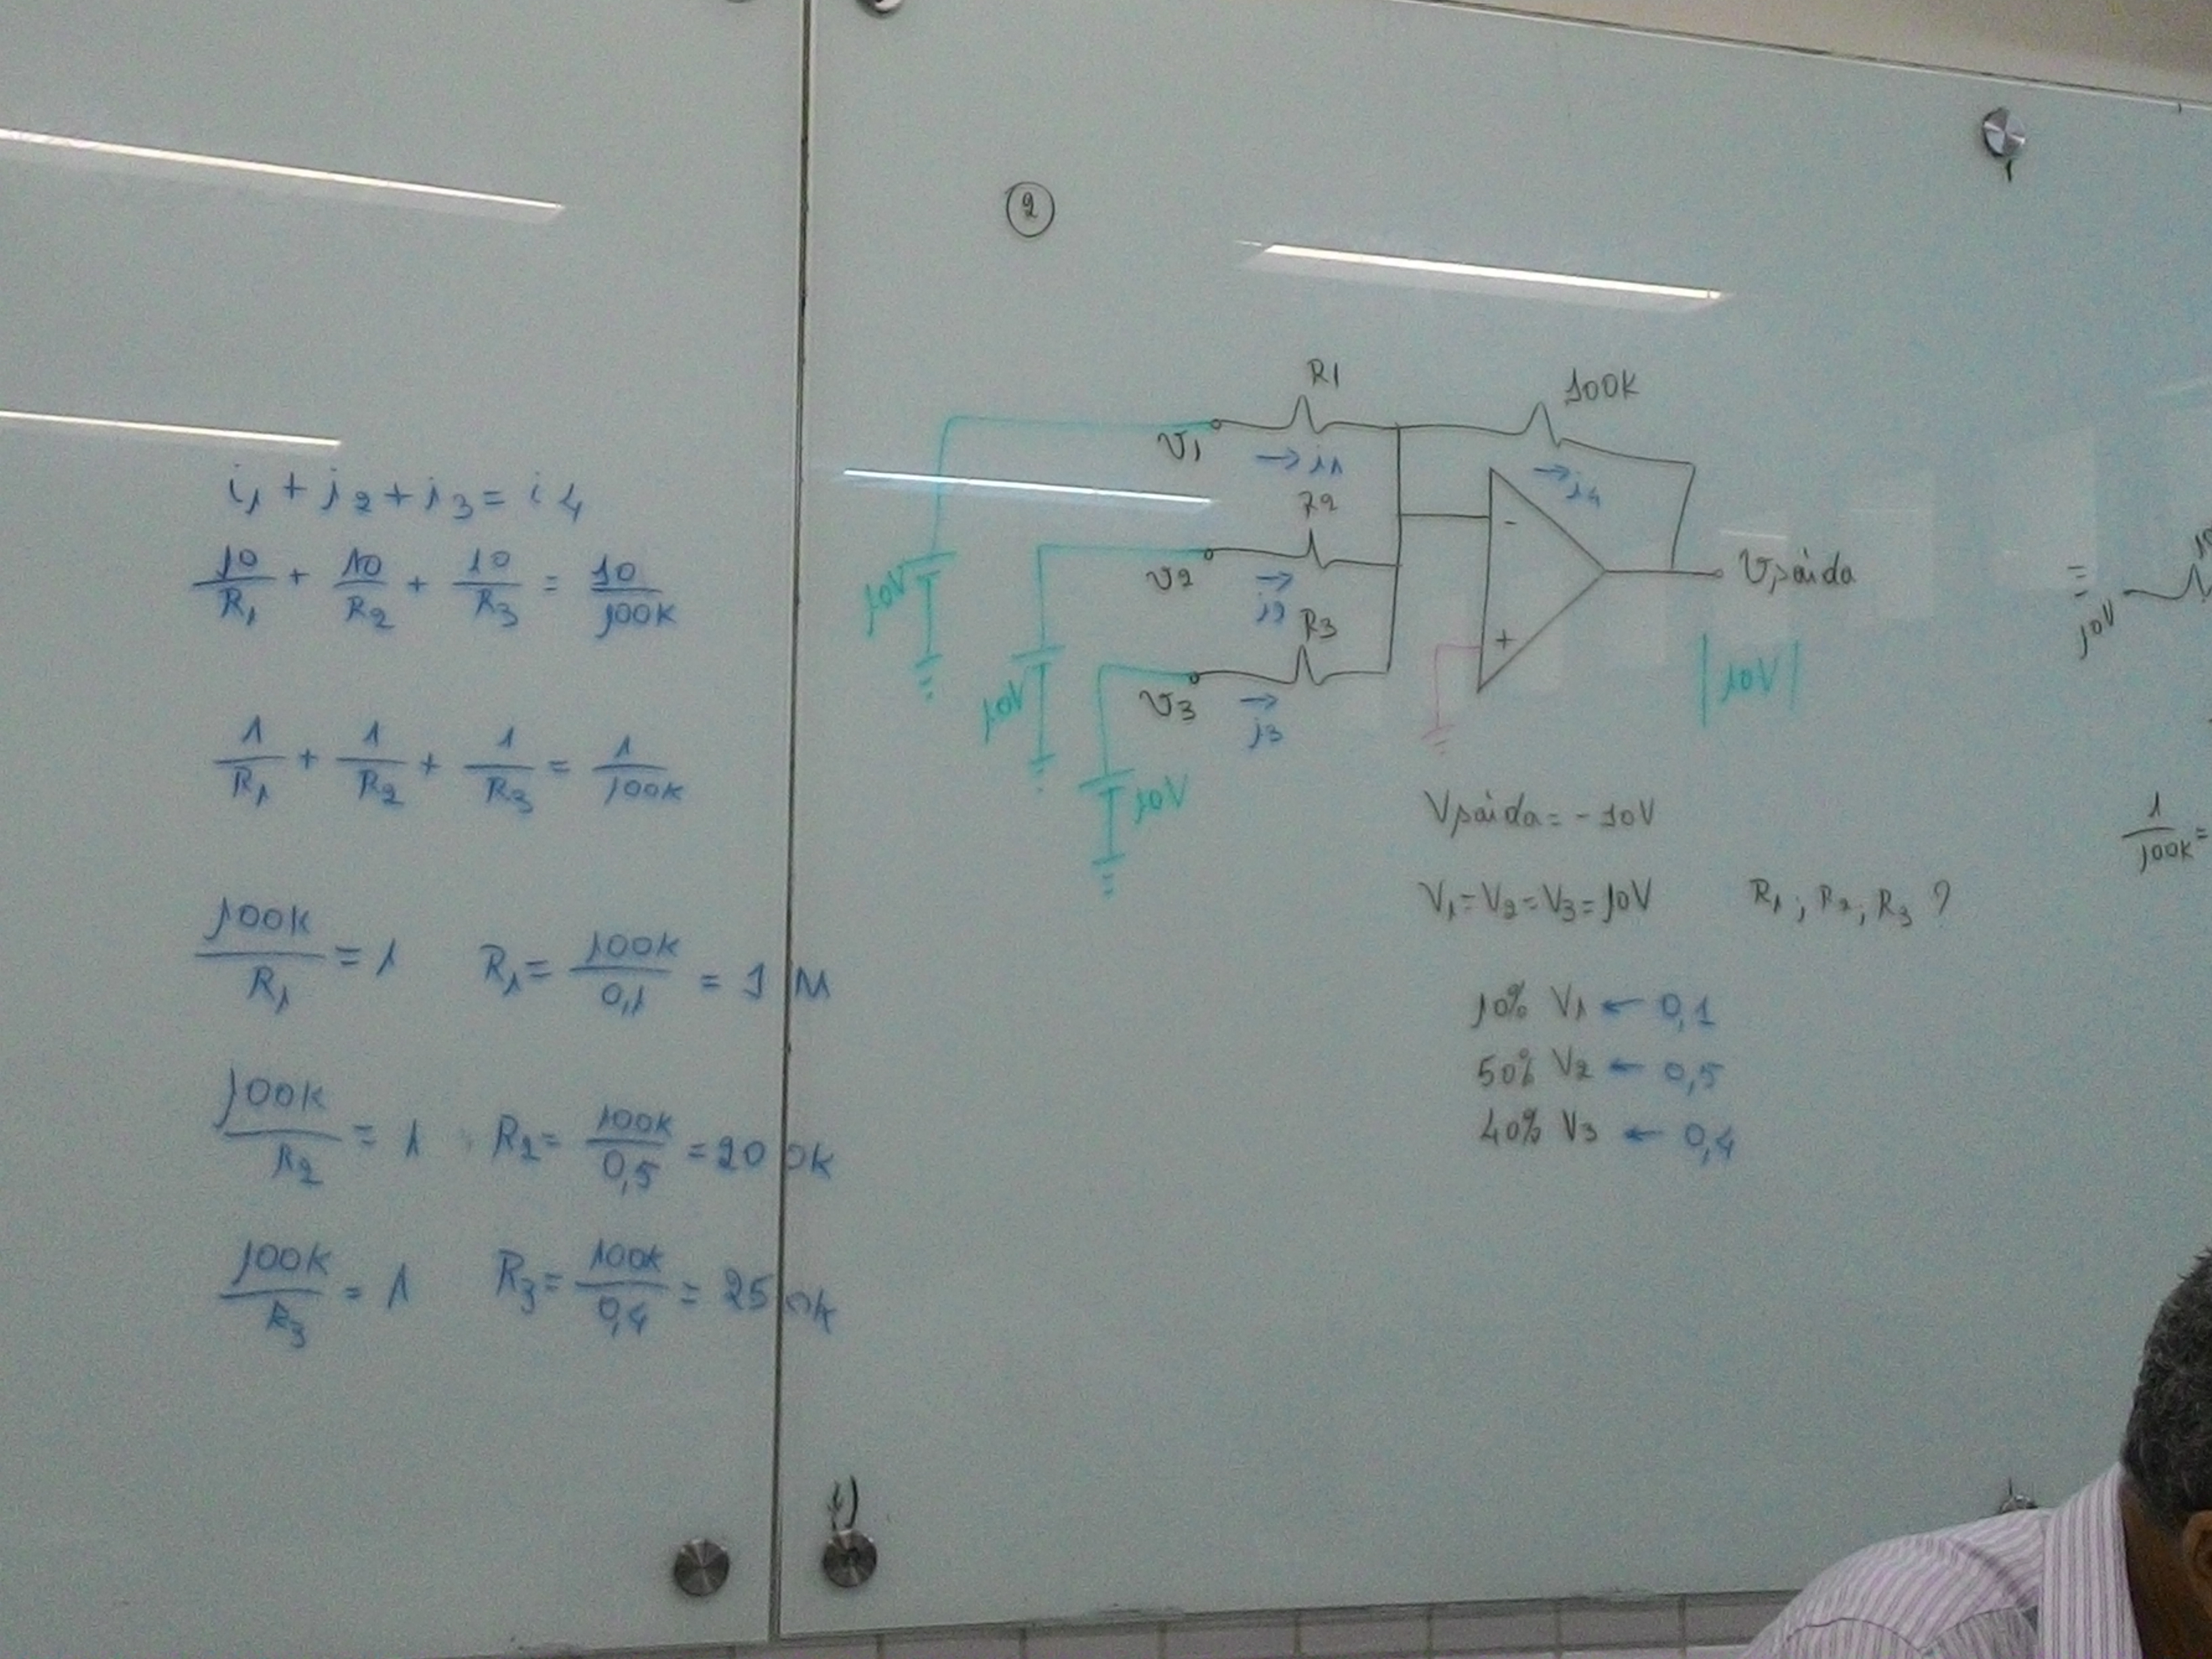 i1 + i2 + i3 = i4
10/R1 + 10/R2 + 10/R3 = 10/100K
1/R1 + 1/R2 + 1/R3 = 1/100K
100K/R1 = 1 R1 = 100K/0,1 = 1 M
100K/R2 = 1 R2 = 100K/0,5 = 200K
100K/R3 = 1 R3 = 100K/0,4 = 250K
2
R1
100K
V1
→ i1
→ i4
R2
-
10V
V2
→ i2
Vsaída
R3
+
10V
V3
→ i3
|10V|
10V
Vsaída = -10V
V1 = V2 = V3 = 10V R1; R2; R3 ?
10% V1 ← 0,1
50% V2 ← 0,5
40% V3 ← 0,4
=
10V
1/100K =